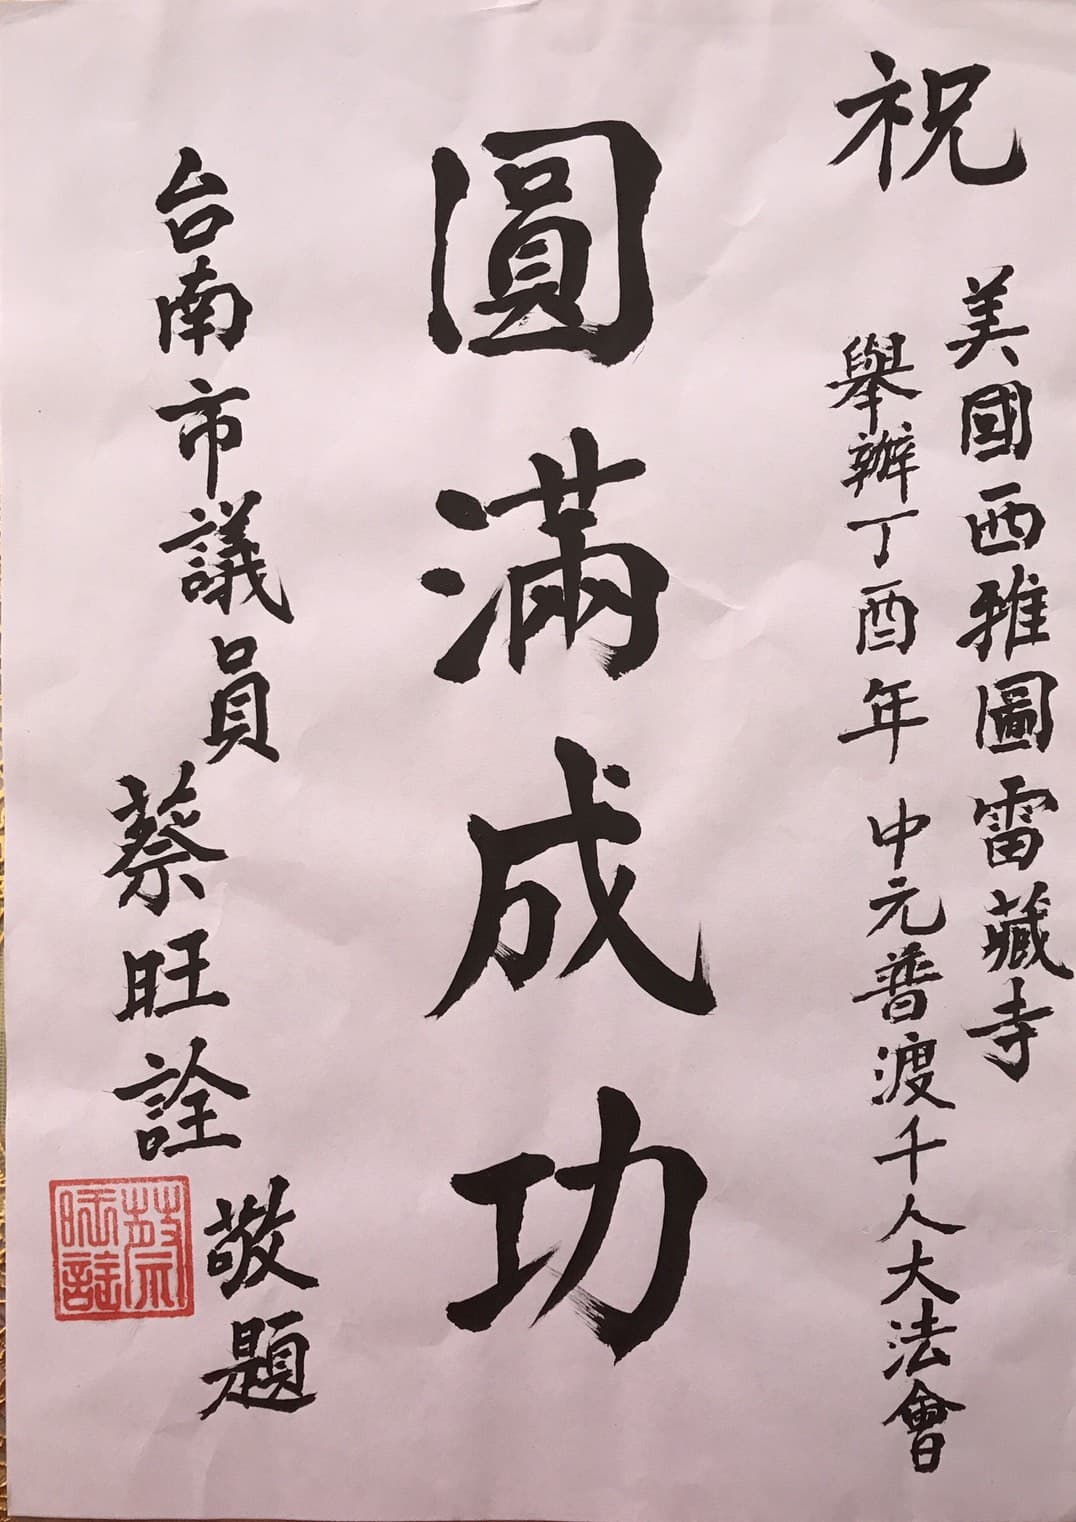 祝
美國西雅圖雷藏寺
舉辦丁酉年 中元普渡千人大法會
圓滿成功
台南市議員蔡旺詮
敬題
蔡旺詮